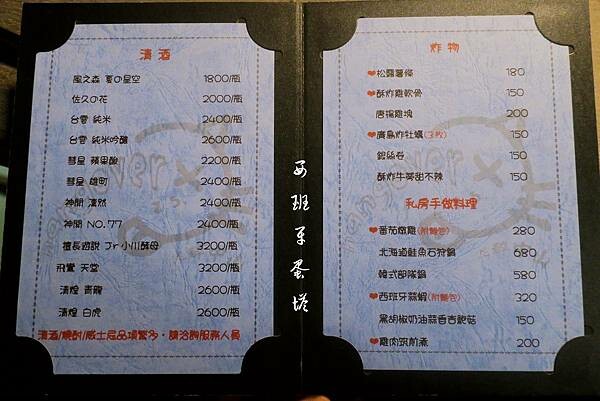 清酒
風之森 夏の星空 1800/瓶
佐久の花 2000/瓶
台雲 純米 2400/瓶
台雲 純米吟釀 2600/瓶
彗星 蘋果酸 2200/瓶
彗星 雄町 2400/瓶
神開 凜然 2400/瓶
神開 NO.77 2400/瓶
擅長遊說 Jr 小川酵母 3200/瓶
飛鸞 天堂 3200/瓶
清煌 青龍 2600/瓶
清煌 白虎 2600/瓶
清酒/燒酎/威士忌品項繁多,請洽詢服務人員
西班牙蛋塔
炸物
❤松露薯條 180
❤酥炸雞軟骨 150
唐揚雞塊 200
❤廣島炸牡蠣(3枚) 150
銀絲卷 150
酥炸牛蒡甜不辣 150
私房手做料理
❤番茄燉雞(附麵包) 280
北海道鮭魚石狩鍋 680
韓式部隊鍋 580
❤西班牙蒜蝦(附麵包) 320
黑胡椒奶油蒜香杏鮑菇 150
❤雞肉筑前煮 200